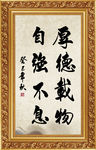 厚德載物
自強不息
癸巳秋